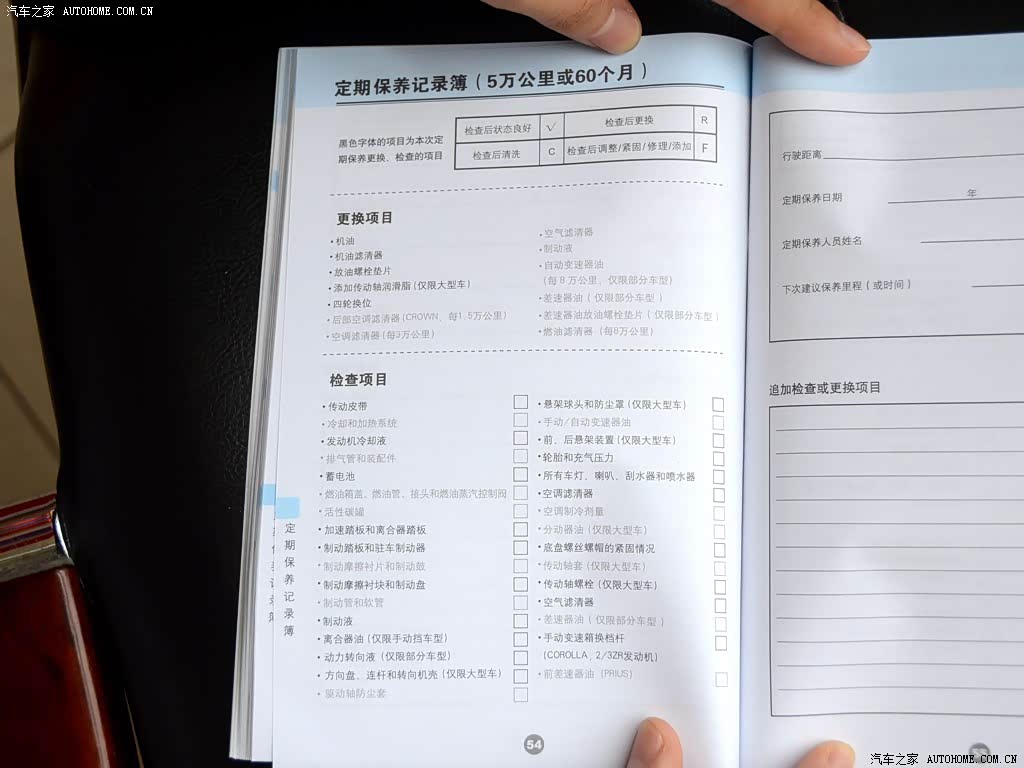 汽车之家 AUTOHOME.COM.CN
定期保养记录簿（5万公里或60个月）
黑色字体的项目为本次定
期保养更换、检查的项目
检查后状态良好 √ 检查后更换 R
检查后清洗 C 检查后调整/紧固/修理/添加 F
更换项目
·机油
·机油滤清器
·放油螺栓垫片
·添加传动轴润滑脂(仅限大型车)
·四轮换位
·后部空调滤清器(CROWN、每1.5万公里)
·空调滤清器(每3万公里)
·空气滤清器
·制动液
·自动变速器油
(每8万公里、仅限部分车型)
·差速器油(仅限部分车型)
·差速器油放油螺栓垫片(仅限部分车型)
·燃油滤清器(每8万公里)
检查项目
·传动皮带
·冷却和加热系统
·发动机冷却液
·排气管和装配件
·蓄电池
·燃油箱盖、燃油管、接头和燃油蒸汽控制阀
·活性碳罐
·加速踏板和离合器踏板
·制动踏板和驻车制动器
·制动摩擦衬片和制动鼓
·制动摩擦衬块和制动盘
·制动管和软管
·制动液
·离合器油(仅限手动挡车型)
·动力转向液(仅限部分车型)
·方向盘、连杆和转向机壳(仅限大型车)
·驱动轴防尘套
·悬架球头和防尘罩(仅限大型车)
·手动/自动变速器油
·前、后悬架装置(仅限大型车)
·轮胎和充气压力
·所有车灯、喇叭、刮水器和喷水器
·空调滤清器
·空调制冷剂量
·分动器油(仅限大型车)
·底盘螺丝螺帽的紧固情况
·传动轴套(仅限大型车)
·传动轴螺栓(仅限大型车)
·空气滤清器
·差速器油(仅限部分车型)
·手动变速箱换档杆
(COROLLA, 2/3ZR发动机)
·前差速器油(PRIUS)
定期保养记录簿
54
行驶距离
定期保养日期 年
定期保养人员姓名
下次建议保养里程(或时间)
追加检查或更换项目
汽车之家 AUTOHOME.COM.CN